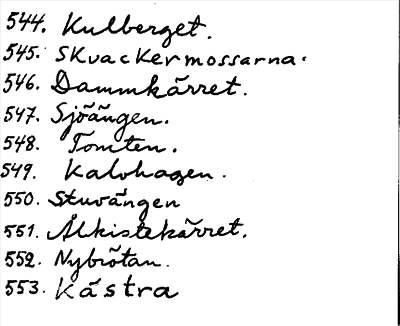 544. Kulberget.
545. Skvackermossarna.
546. Dammkärret.
547. Sjöängen.
548. Tomten.
549. Kalvhagen.
550. Stuvängen
551. Ålkistekärret.
552. Nybrötan.
553. Kästra